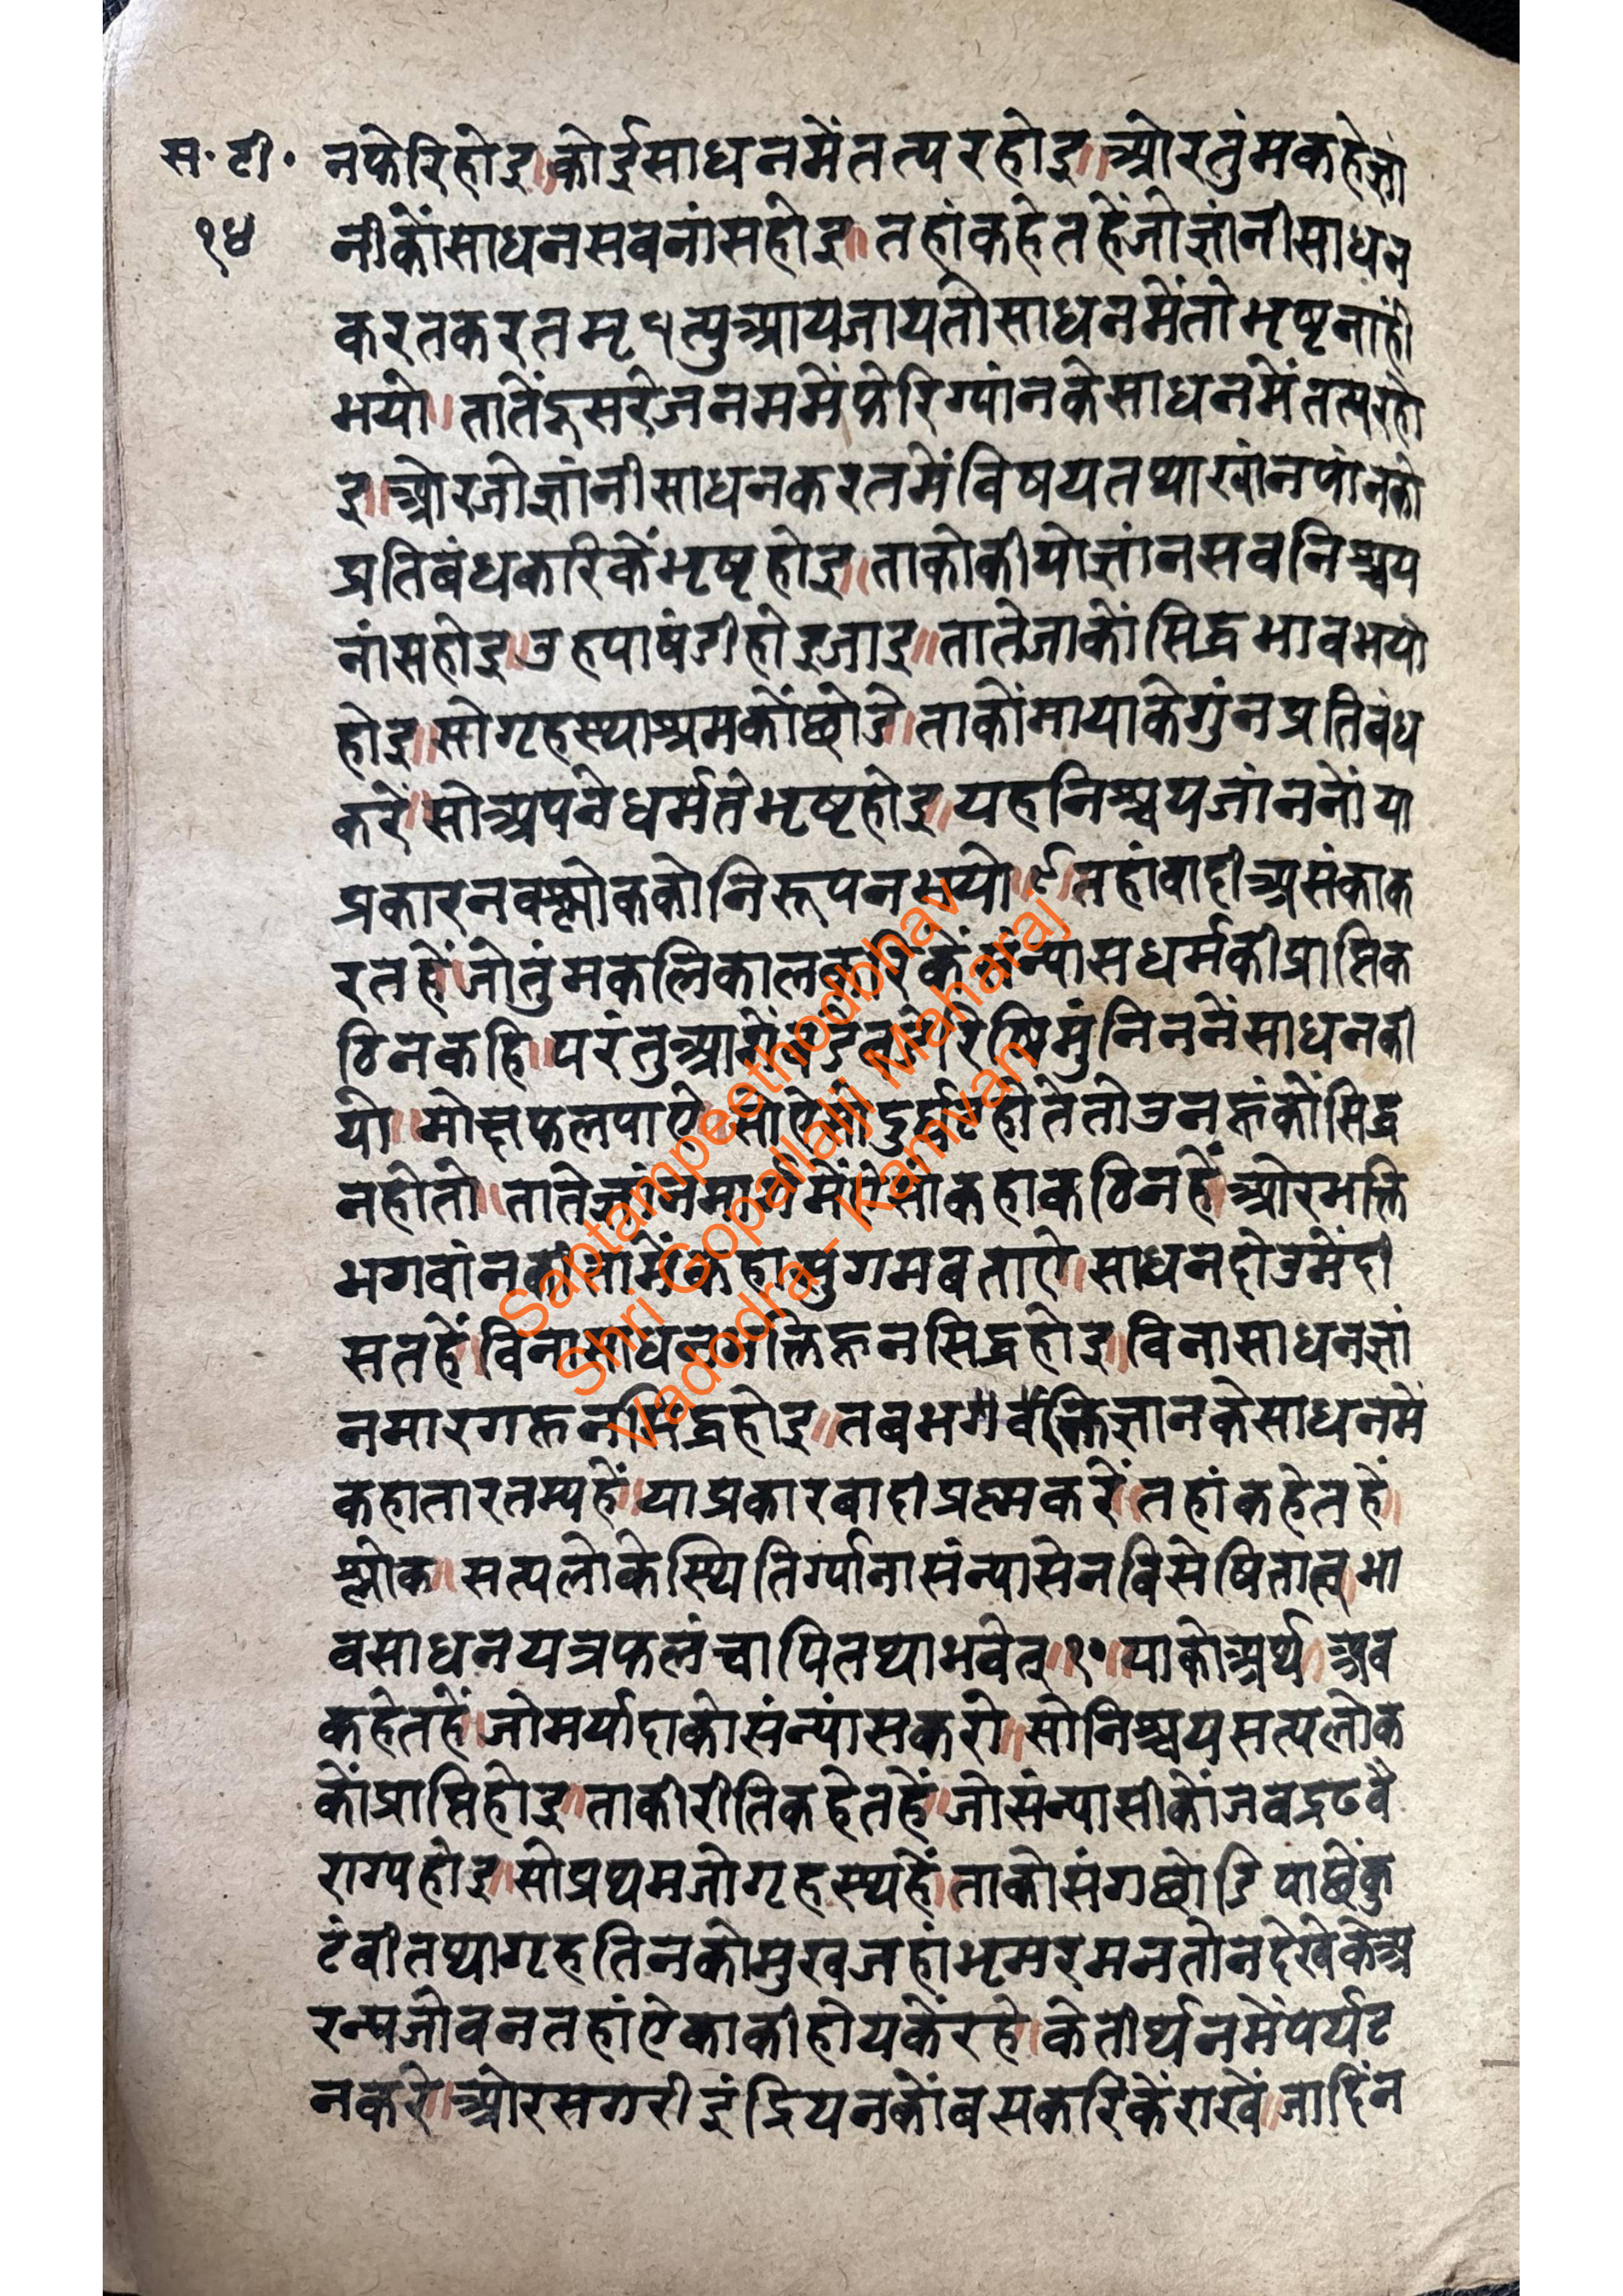 स॰ टी॰
१४
नफेरिहोइ॥कोईसाधनमेंतत्परहोइ॥ओरतुंमकहेज्ञां
नीकोंसाधनसबनांसहोइ॥तहांकहेतहेंजोज्ञांनीसाधन
करतकरतमृत्युआयजायतोसाधनमेंतोभृष्टनांही
भयो॥तातेंदूसरेजनममेंफेरिग्यांनकेसाधनमेंतत्परहो
इ॥ओरजोज्ञांनीसाधनकरतमेंविषयतथाखांनपांनको
प्रतिबंधकरिकेंभृष्टहोइ॥ताकोकीयोज्ञांनसबनिश्चय
नांसहोइ॥उहपाषंडीहोइजाइ॥तातेजाकोंसिद्धभावभयो
होइ॥सोगृहस्थाश्रमकोंछोडे॥ताकोंमायाकेगुंनप्रतिबंध
करें॥सोअपनेधर्मतेभृष्टहोइ॥यहनिश्चयजांननों॥या
प्रकारनवश्लोककोनिरूपनभयो॥९॥तहांवादीअसंकाक
रतहें॥जोतुंमकलिकालकरिकेंसंन्यासधर्मकीप्राप्तिक
ठिनकहि॥परंतुआगेंबडेबडेरिषिमुंनिननेंसाधनकी
यो॥मोक्षफलपाऐ॥सोऐसोदुर्घटहोतेतोउनहूंकोंसिद्ध
नहोतो॥तातेज्ञांनमार्गमेंऐसोकहाकठिनहें॥ओरभक्ति
भगवांनकीतामेंकहासुगमबताऐ॥साधनदोउमेंदी
सतहें॥विनासाधनभक्तिहूनसिद्धहोइ॥विनासाधनज्ञां
नमारगहूनसिद्धहोइ॥तबभगवद्भक्तिज्ञानकेसाधनमें
कहातारतम्यहें॥याप्रकारबादीप्रश्नकरें॥तहांकहेतहें॥
श्लोक॥सत्यलोकेस्थितिर्ग्यानासंन्यासेनविसेषितात्॥भा
वसाधनयत्रफलंचापितथाभवेत्॥१०॥याकोअर्थ॥अब
कहेतहें॥जोमर्यादाकोसंन्यांसकरो॥सोनिश्चयसत्यलोक
कोंप्राप्तिहोइ॥ताकीरीतिकहेतहें॥जोसंन्यासीकोंजबद्रढवै
राग्यहोइ॥सोप्रथमजोगृहस्थहें॥ताकोसंगछोडि॥पाछेंकु
टंबीतथागृहतिनकोमुखजहांभृमरमनतोनदेखेकेअ
रन्यजोबनतहांऐकाकीहोयकेंरहे॥केतीर्थनमेंपर्यट
नकरे॥ओरसगरीइंद्रियनकोंबसकरिकेंराखें॥जादिंन
Saptampeethodbhav
Shri Gopallalji Maharaj
Vadodra - Kamvan